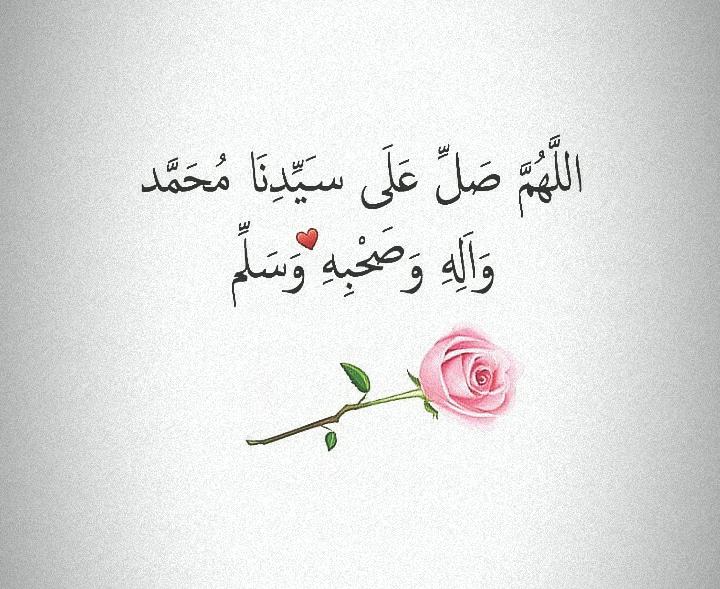 اللَّهُمَّ صَلِّ عَلَى سَيِّدِنَا مُحَمَّد
وَاَلِهِ وَصَحْبِهِ وَسَلِّم